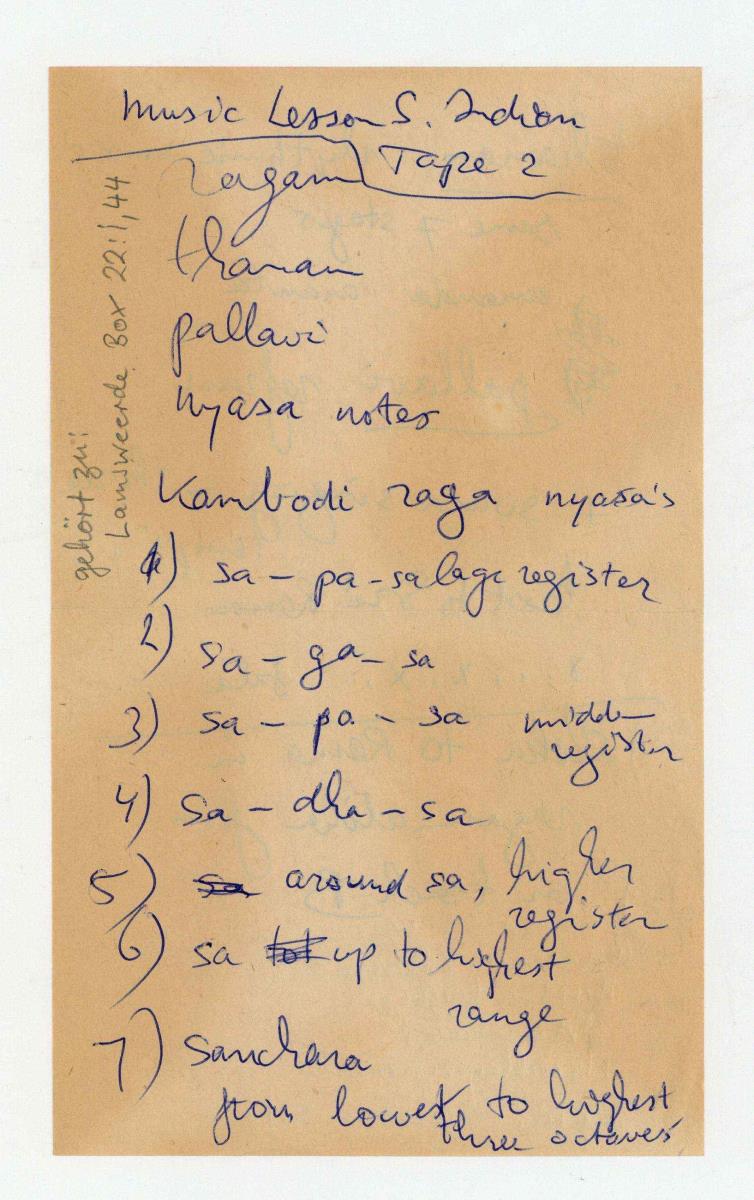 Music Lesson S. Indian
Tape 2
ragam
thanam
pallavi
nyasa notes
Kambodi raga nyasa's
1) sa - pa - sa lage register
2) sa - ga - sa
3) sa - pa - sa midd-
register
4) sa - dha - sa
5) around sa, higher
register
6) sa up to highest
range
7) Sanchara
from lowest to highest
three octaves
gehört zu:
Lamsweerde Box 22:1,44